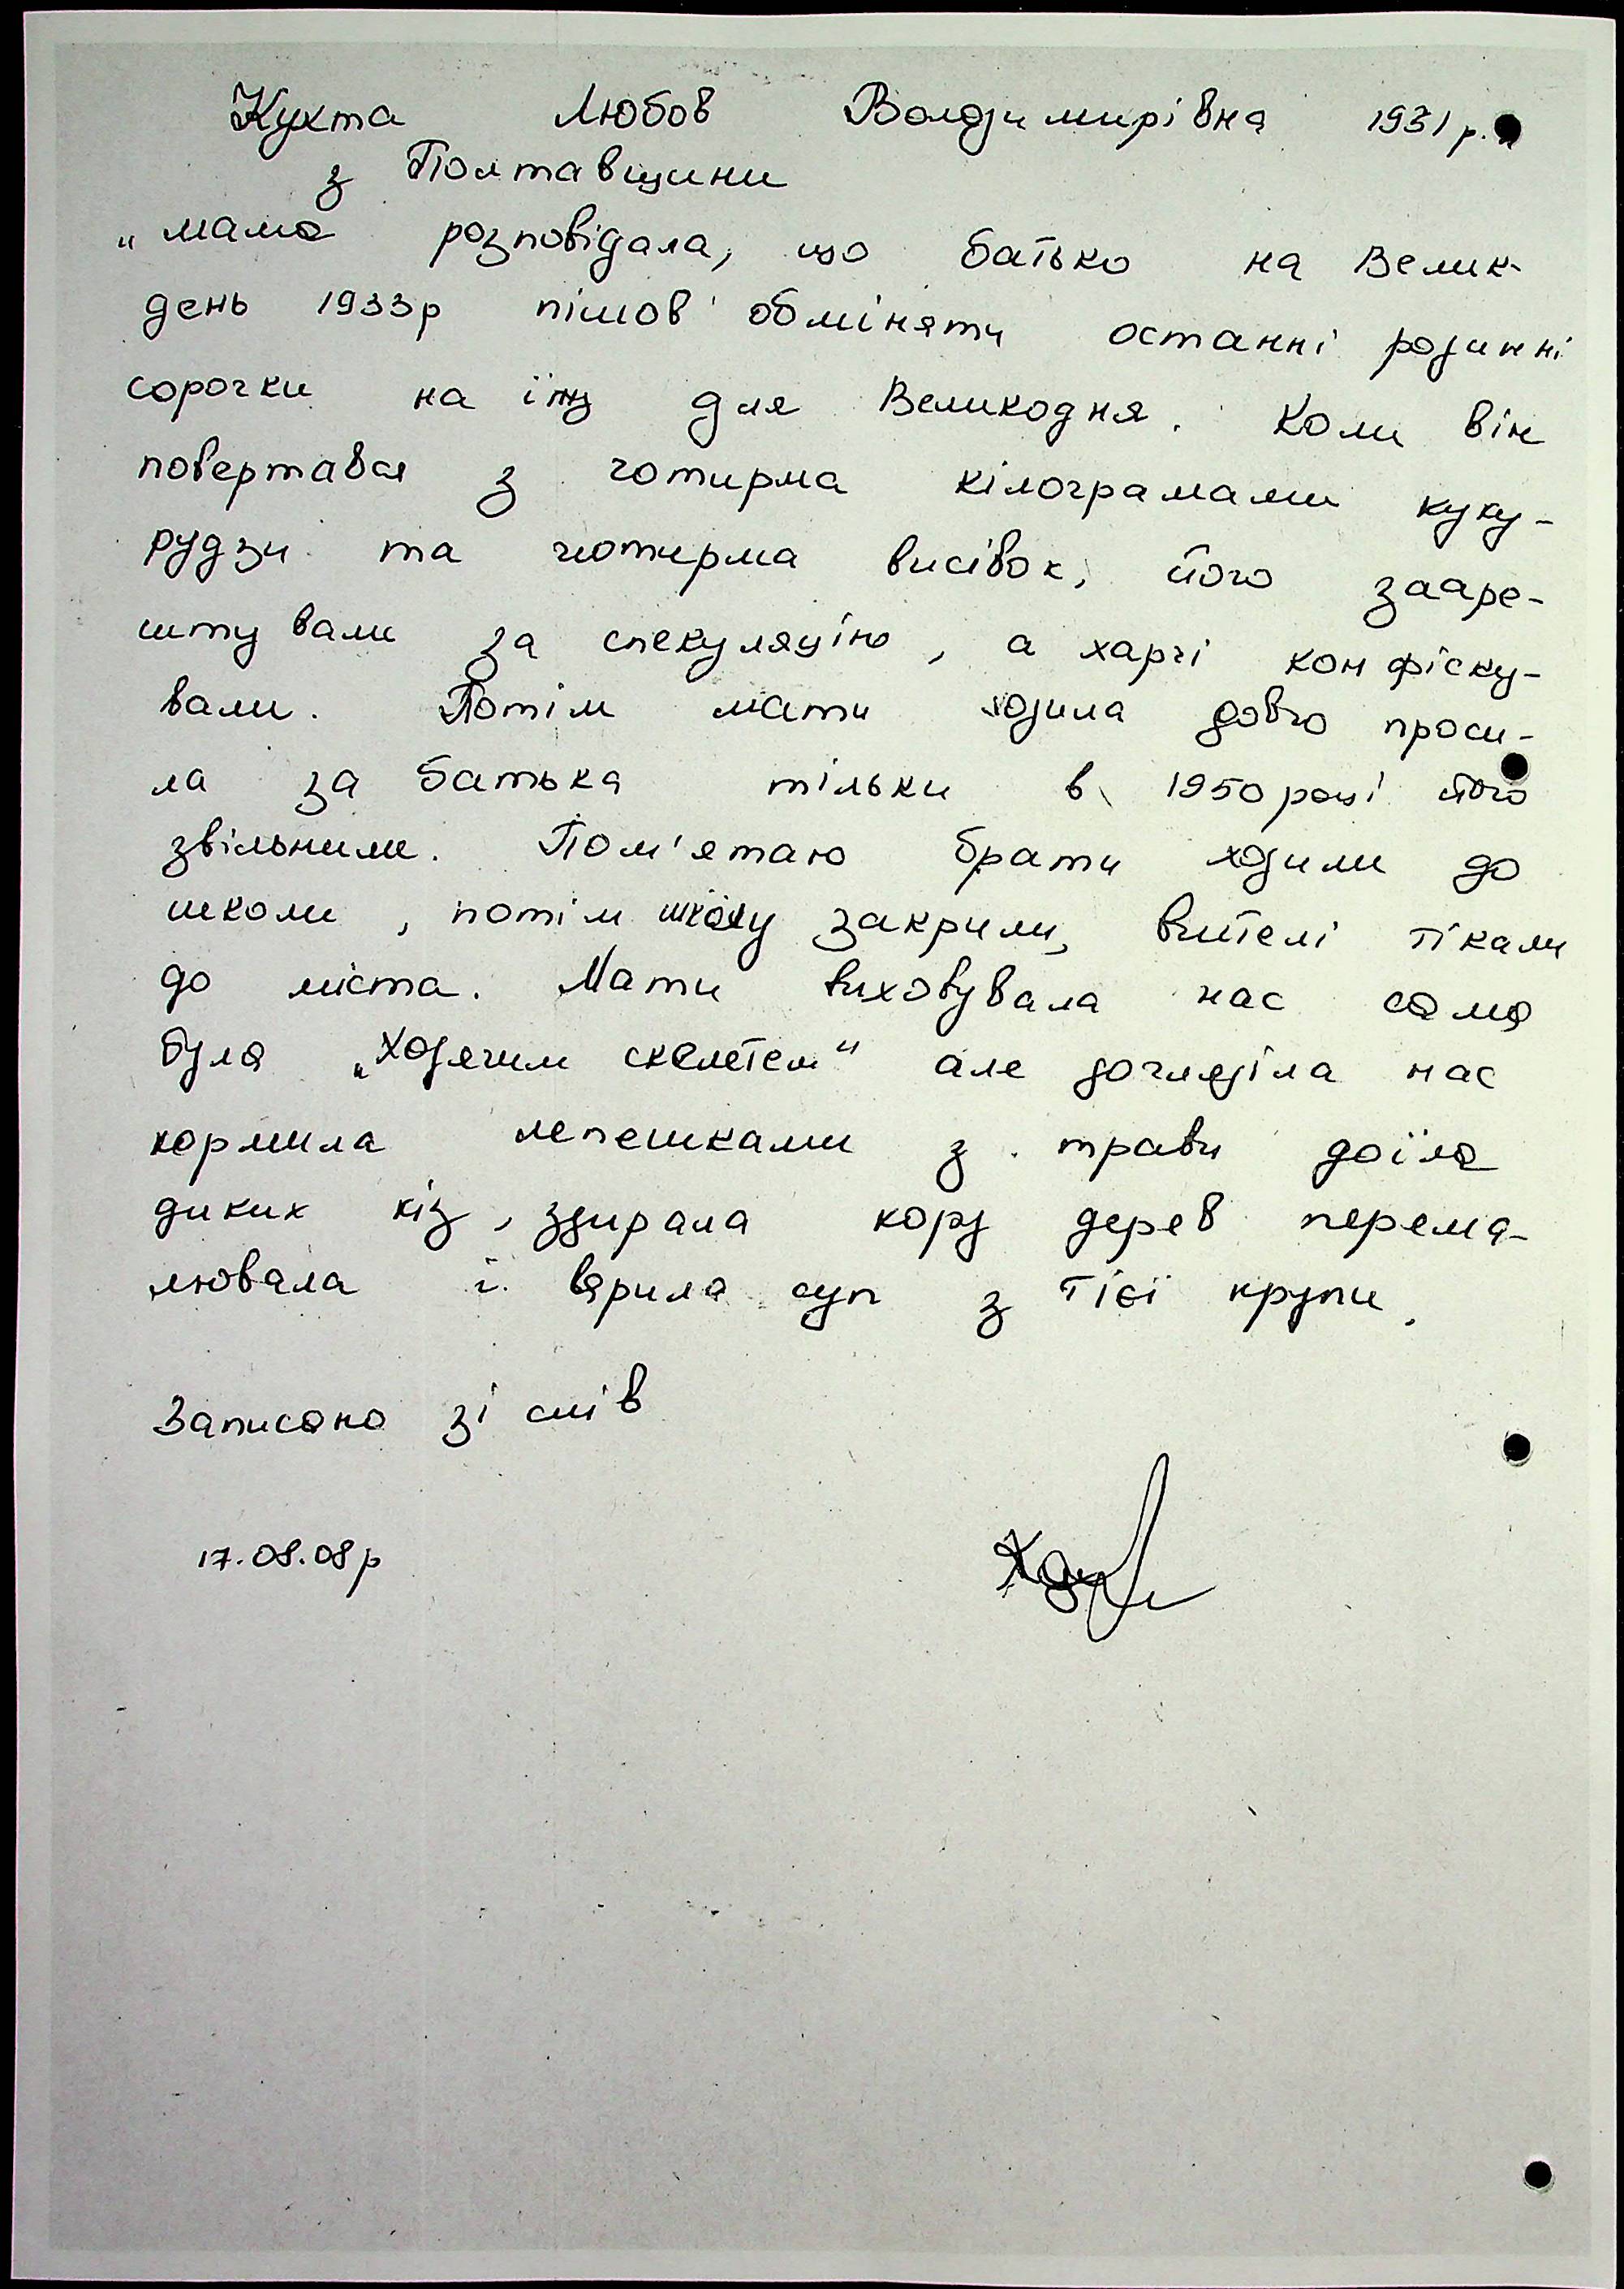 Кухта Любов Володимирівна 1931 р.
з Полтавщини
„мама розповідала, що батько на Велик-
день 1933р пішов обміняти останні родинні
сорочки на їжу для Великодня. Коли він
повертався з чотирма кілограмами куку-
рудзи та чотирма висівок, його зааре-
штували за спекуляцію, а харчі конфіску-
вали. Потім мати ходила довго проси-
ла за батька тільки в 1950 році його
звільнили. Пом'ятаю брати ходили до
школи, потім школу закрили, вчителі тікали
до міста. Мати виховувала нас сама
була „Ходячим скелетем" але догляділа нас
кормила лепешками з трави доїла
диких кіз, здирала кору дерев перема-
лювала і варила суп з тієї крупи.
Записано зі слів
17.08.08р